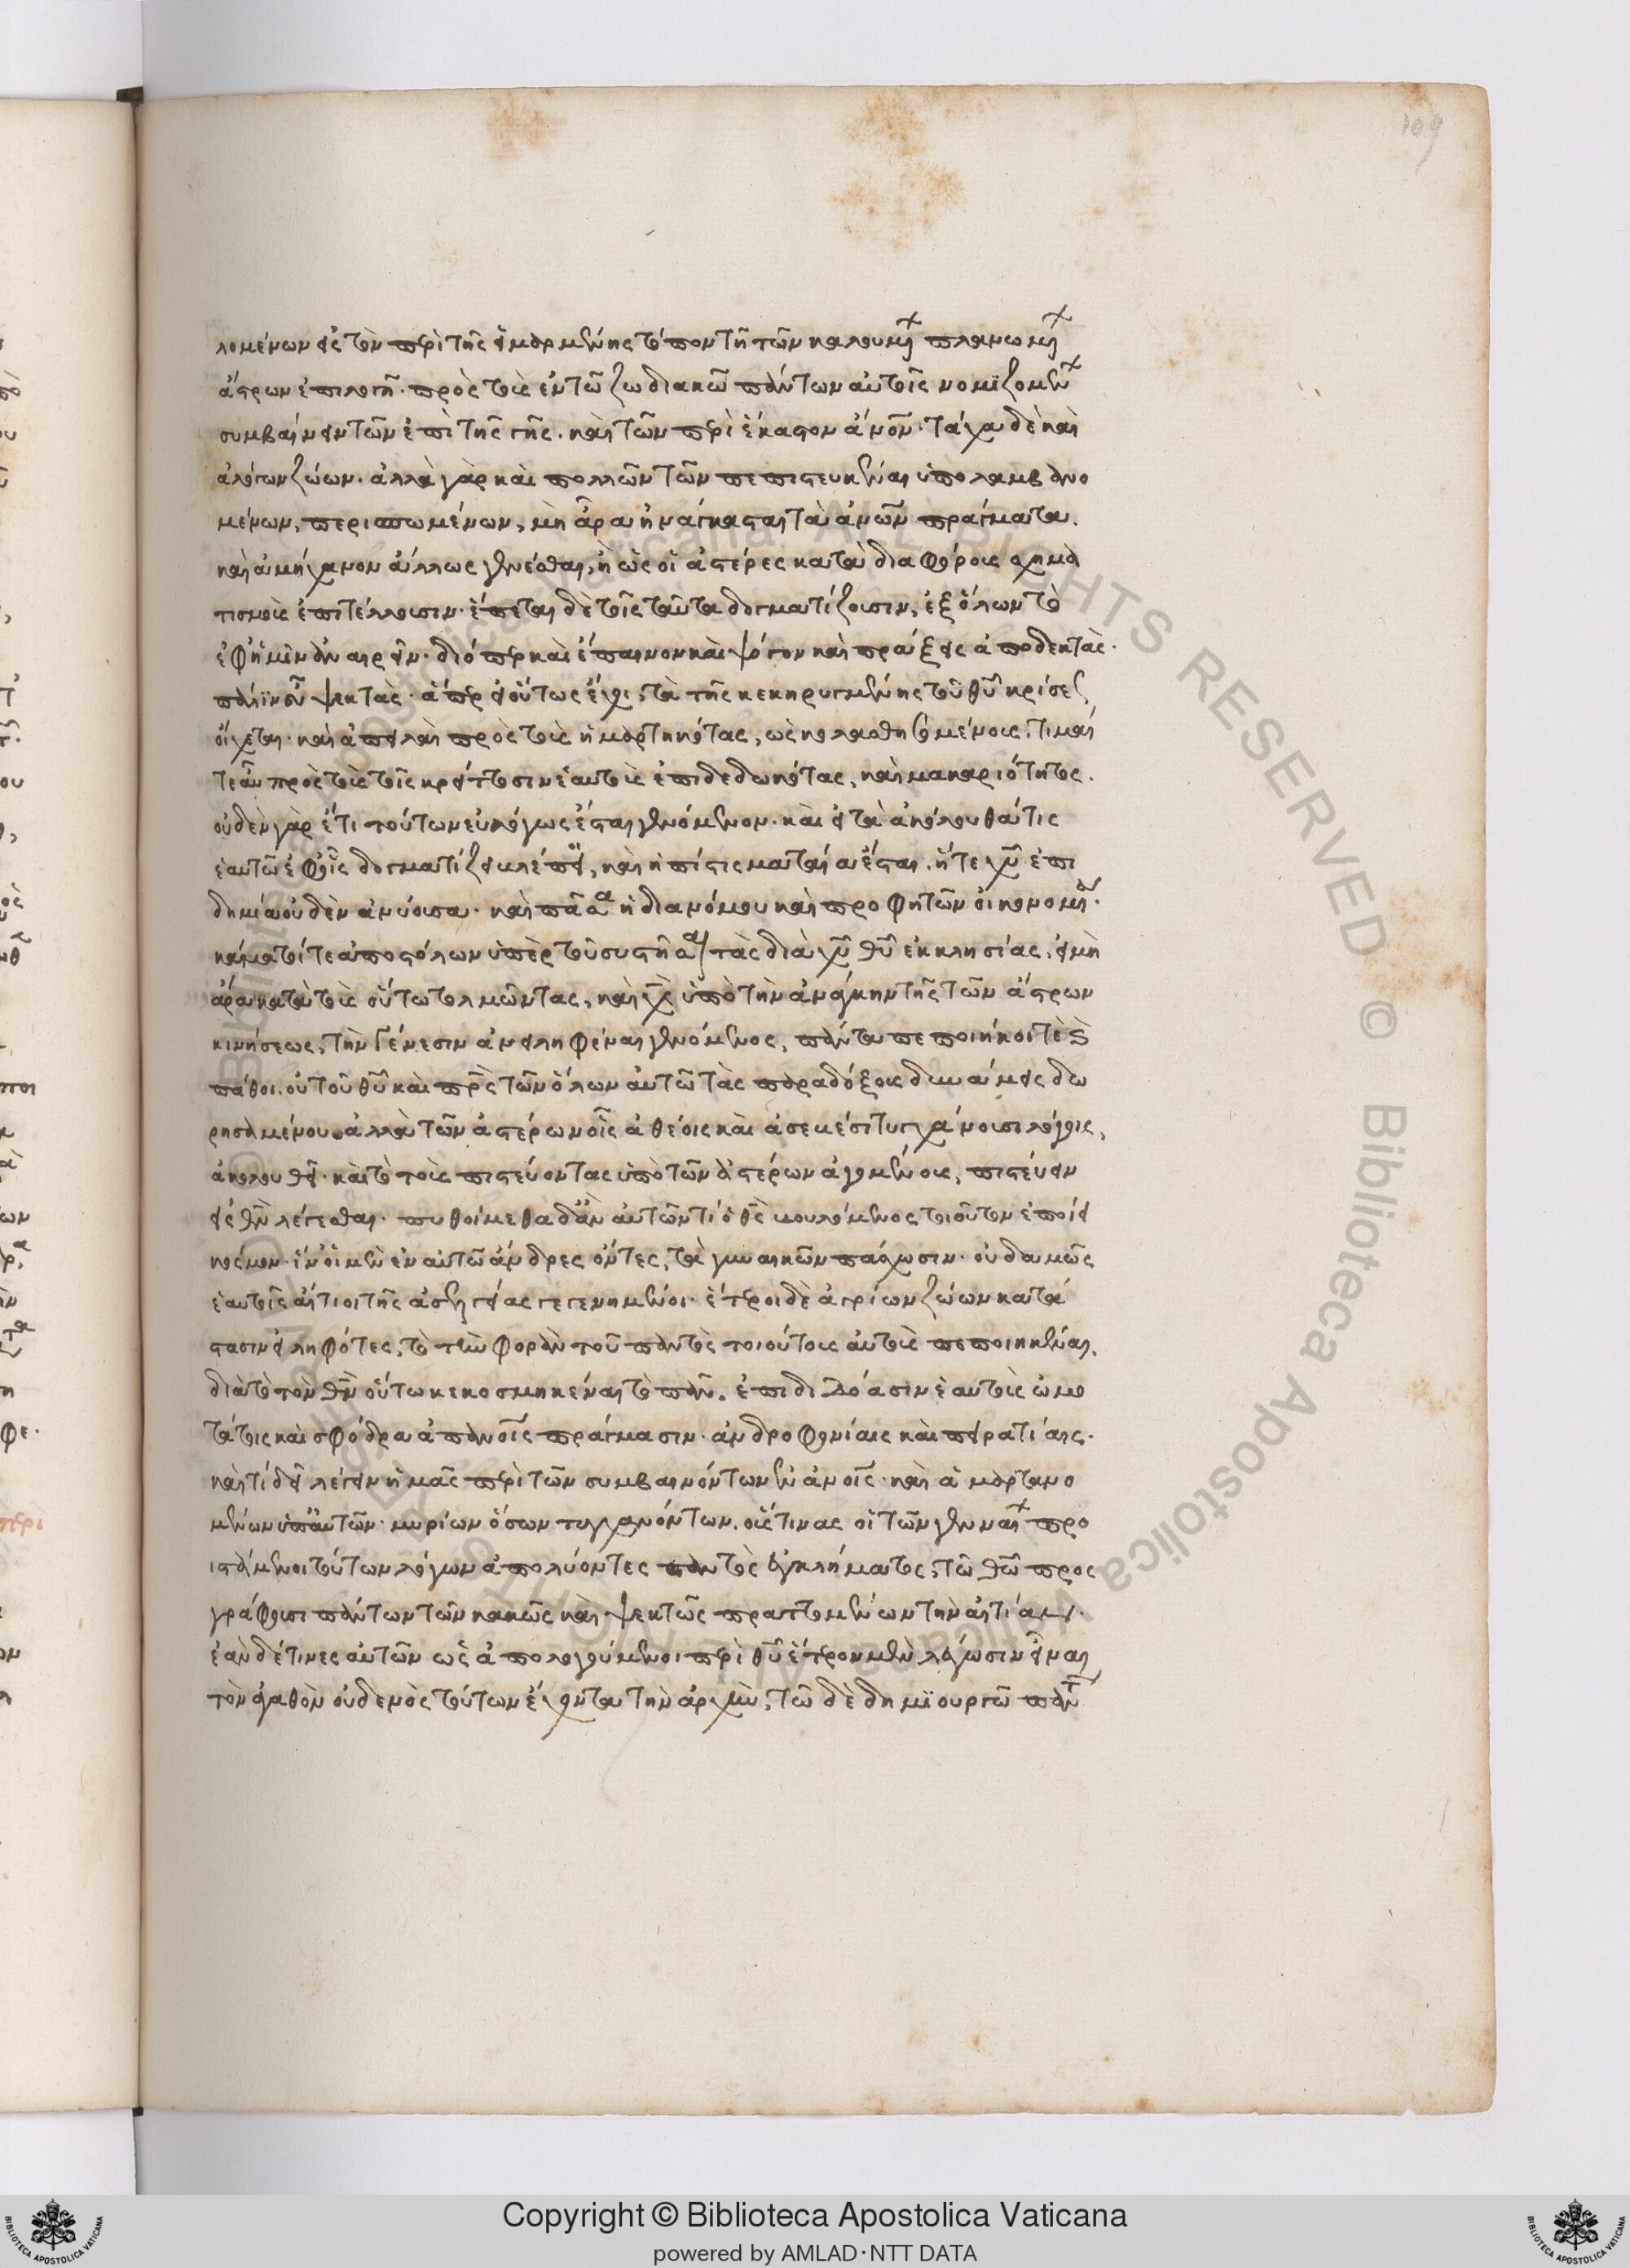 109
λομένων εἰς τὸν περὶ τῆς εἱμαρμένης τόπον τῇ τῶν καλουμένων πλανωμένων
ἄστρων ἐπιπλοκῇ· πρὸς τοὺς ἐν τῶ ζωδιακῶ πάντων αὐτοῖς νομϊζομένων
συμβαίνειν τῶν ἐπὶ τῆς γῆς· καὶ τῶν περὶ ἕκαστον ἄνον· τάχα δὲ καὶ
ἀλόγων ζώων· ἀλλὰ γὰρ καὶ πολλῶν τῶν πεπιστευκέναι ὑπολαμβανο
μένων, περισπωμένων, μὴ ἄρα ἠνάγκασται τὰ ἀνῶν πράγματα.
καὶ ἀμήχανον ἄλλως γενέσθαι, ἢ ὡς οἱ ἀστέρες κατὰ διαφόρους σχημα
τισμοὺς ἐπιτέλλουσιν· ἕπεται δὲ τοῖς ταῦτα δογματίζουσιν, ἐξ ὅλων τὸ
ἐφ' ἡμῖν ἀναιρεῖν· διόπερ καὶ ἔπαινον καὶ ψόγον καὶ πράξεις ἀποδεκτὰς·
πάλϊν οὖν ψεκτὰς· ἅπερ εἰ οὕτως ἔχει, τὰ τῆς κεκηρυγμένης τοῦ θυ κρίσεως
οἴχεται· καὶ ἀπειλαὶ πρὸς τοὺς ἡμαρτηκότας, ὡς κολασθησομένους, τιμαί
τε αὖ πρὸς τοὺς τοῖς κρείττοσιν ἑαυτοὺς ἐπιδεδωκότας, καὶ μακαριότητες.
οὐδὲν γὰρ ἔτι τούτων εὐλόγως ἔσται γενόμενον· καὶ εἰ τὰ ἀκόλουθά τις
ἑαυτῶ ἐφ' οἷς δογματίζει βλέποι, καὶ ἡ πίστις ματαία ἔσται. ἥ τε χυ ἐπι
δημία οὐδὲν ἀνύουσα· καὶ πᾶσα ἡ διὰ νόμου καὶ προφητῶν οἰκονομία·
κάματοί τε ἀποστόλων ὑπὲρ τοῦ συστῆσαι τὰς διὰ χυ θυ ἐκκλησίας, εἰ μὴ
ἄρα κατὰ τοὺς οὕτω τολμῶντας, καὶ χς ὑπὸ τὴν ἀνάγκην τῆς τῶν ἄστρων
κινήσεως, τὴν γένεσιν ἀνειληφέναι γενόμενος, πάντα πεποιήκοι τὲ καὶ
πάθοι. οὐ τοῦ θυ καὶ πρς τῶν ὅλων αὐτῶ τὰς παραδόξους δυνάμεις δω
ρησαμένου ἀλλὰ τῶν ἀστέρων οἷς ἀθέοις καὶ ἀσεβέσι τυγχάνουσι λόγοις,
ἀκολουθεῖ· καὶ τὸ τοὺς πιστεύοντας ὑπὸ τῶν ἀστέρων ἀγομένους, πιστεύειν
εἰς θν λέγεσθαι· πυθοίμεθα δ' ἂν αὐτῶν τί ὁ θς βουλόμενος τοιοῦτον ἐποίει
κόσμον· ἵν' οἱ μὲν ἐν αὐτῶ ἄνδρες ὄντες, τὰ γυναικῶν πάσχωσιν· οὐδαμῶς
ἑαυτοῖς αἴτιοι τῆς ἀσελγείας γεγενημένοι· ἕτεροι δὲ ἀγρίων ζώων κατά
στασιν εἰληφότες, τὸ τὴν φορὰν τοῦ παντὸς τοιούτους αὐτοὺς πεποιηκέναι,
διὰ τὸ τὸν θν οὕτω κεκοσμηκέναι τὸ πᾶν, ἐπιδιδόασιν ἑαυτοὺς ὠμο
τάτοις καὶ σφόδρα ἀπανοις πράγμασιν· ἀνδροφονίαις καὶ πειρατίαις·
καὶ τί δεῖ λέγειν ἡμᾶς περὶ τῶν συμβαινόντων ἐν ἀνοις· καὶ ἁμαρτανο
μένων ὑπ' αὐτῶν· μυρίων ὅσων τυγχανόντων. οὕς τινας οἱ τῶν γενναίων προ
ιστάμενοι τούτων λόγων ἀπολύοντες παντὸς ἐγκλήματος, τῶ θῶ προς
γράφουσι πάντων τῶν κακῶς καὶ ψεκτῶς πραττομένων τὴν αἰτίαν.
ἐὰν δέ τινες αὐτῶν ὡς ἀπολογούμενοι περὶ θυ ἕτερον μὲν λέγωσιν εἶναι
τὸν ἀγαθὸν οὐδενὸς τούτων ἔχοντα τὴν ἀρχὴν, τῶ δὲ δημϊουργῶ πάντα
Copyright © Biblioteca Apostolica Vaticana
powered by AMLAD·NTT DATA